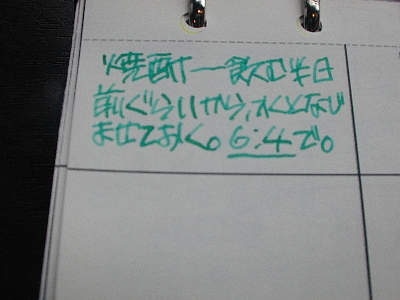 焼酎ー飲む半日
前ぐらいから、水となじ
ませておく。6:4で。